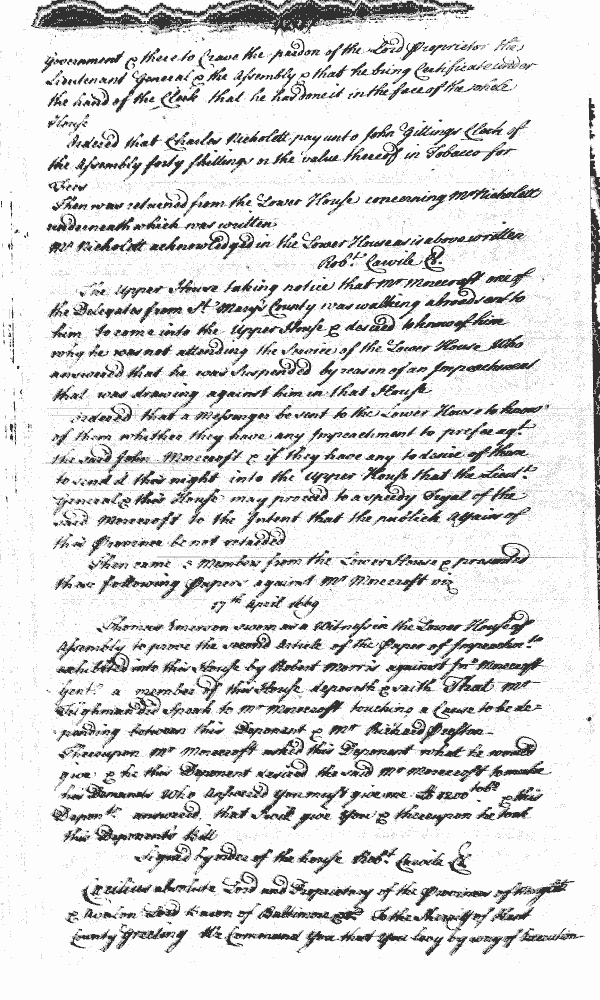 Government & there to Crave the pardon of the Lord Proprietor the
Lieutenant General & the Assembly & that he bring Certificate under
the hand of the Clerk that he has done it in the face of the whole
House
Ordered that Charles Nicholett pay unto John Gittings Clerk of
the Assembly forty shillings or the value thereof in Tobacco for
Fees
Then was returned from the Lower House concerning Mr Nicholett
underneath which was written
Mr Nicholett acknowledged in the Lower House as is above written
Robt. Carvile Cl.
The Upper House taking notice that Mr Morecroft one of
the Delegates from St. Marys County was walking abroad sent to
him to come into the Upper House & desired to know of him
why he was not attending the Service of the Lower House Who
answered that he was Suspended by reason of an Impeachment
that was drawing against him in that House
Ordered that a Messenger be sent to the Lower House to know
of them whether they have any Impeachment to prefer agt.
the said John Morecroft & if they have any to desire of them
to send it this night into the Upper House that the Lieut.
General & this House may proceed to a speedy Tryal of the
said Morecroft to the Intent that the publick Affairs of
this Province be not retarded
Then came 2 Members from the Lower House & presented
these following Papers against Mr Morecroft viz
17th April 1669
Thomas Emerson sworn as a Witness in the Lower House of
Assembly to prove the second Article of the Paper of Impeachmts.
exhibited into this House by Robert Morris against Jno. Morecroft
Gent. a member of this House deposeth & saith That Mr
Tilghman did Speak to Mr Morecroft touching a Cause to be de=
pending between this Deponent & Mr Richard Preston
Thereupon Mr Morecroft asked this Deponent what he would
give & he this Deponent desired the said Mr Morecroft to make
his Demands Who Answered You must give me 1200 tobo. & this
Depont. answered that I will give You & thereupon he took
this Deponents Bill
Signed by order of the house Robt. Carvile Cl
Cecilius absolute Lord and Proprietary of the Provinces of Maryland
& Avalon Lord Baron of Baltimore &c To the Sheriff of Kent
County Greeting We Command You that You levy by way of Execution